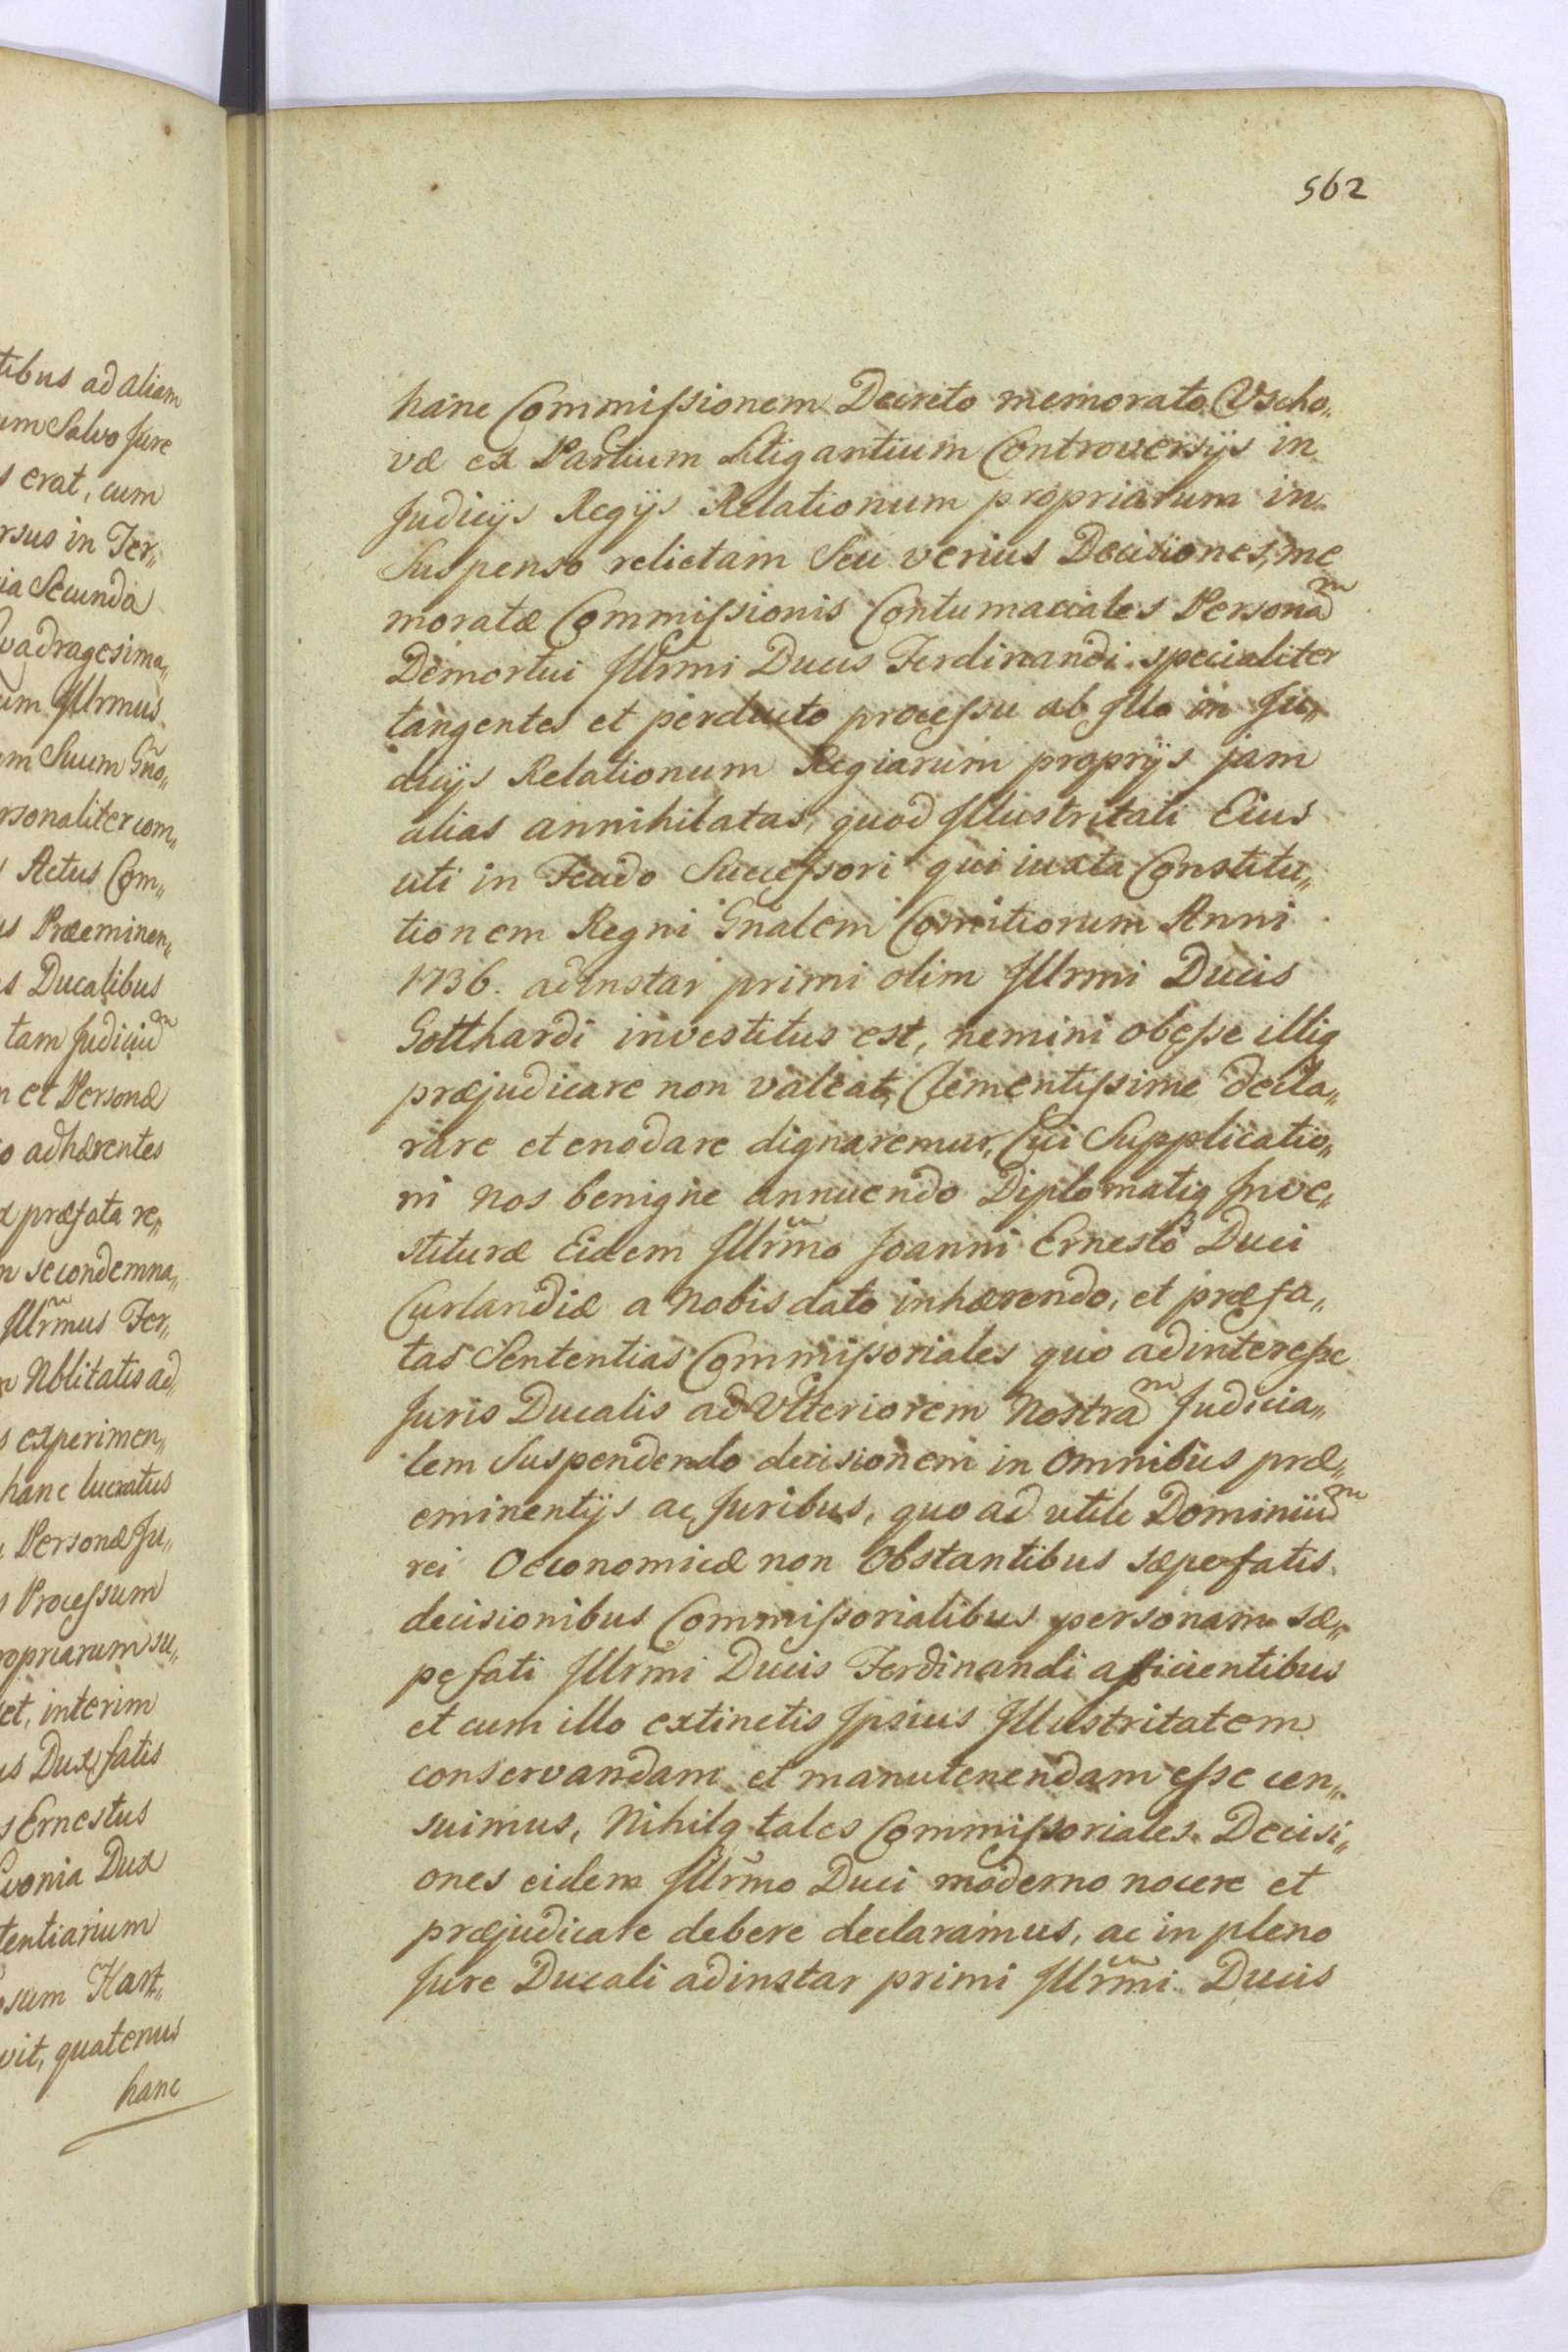 tibus ad aliam
um Salvo Jure
s erat, cum
rsus in Ter„
ia Secunda
Quadragesima„
um Jllrmus
em Suum Gno„
rsonaliter com„
Actus Com„
us Præeminen„
s Ducalibus
tam Judiciu͞m
n et Personæ
o adhærentes
x præfata re„
n secondemna„
Jllrmus Fer„
Nblitatis ad„
s experimen„
hanc lucratus
Personæ Ju„
Processum
ropriarum su„
et, interim
us Dux, fatis
s Ernestus
vonia Dux
tentiarium
sum Hart„
vit, quatenus
hanc
562
hanc Commissionem Decreto memorato Vscho„
væ ex Partium Litigantium Controversijs in
Judicijs Regijs Relationum propriarum in
Suspenso relictam Seu verius Decisiones, me
moratæ Commissionis Contumaciales Personam
Demortui Jllrmi Ducis Ferdinandi specialiter
tangentes et perducto processu ab Jllo in Ju„
dicijs Relationum Regiarum proprijs jam
alias annihilatas, quod Jllustritati Eius
uti in Feudo Successori qui iuxta Constitu„
tionem Regni Gnalem Comitiorum Anni
1736. adinstar primi olim Jllrmi Ducis
Gotthardi investitus est, nemini obesse illiq
præjudicare non valeat, Clementissime decla„
rare et enodare dignaremur, Cui Supplicatio„
ni Nos benigne annuendo Diplomatiq Jnve„
stituræ Eidem Jllrmo Joanni Ernesto Duci
Curlandiæ a Nobis dato inhærendo, et præfa„
tas Sententias Commissoriales quo ad interesse
Juris Ducalis ad Vlteriorem Nostram Judicia„
lem Suspendendo decisionem in omnibus præ„
eminentijs ac Juribus, quo ad utile Dominium
rei Oeconomicæ non Obstantibus sæpefatis
decisionibus Commissorialibus personam sæ„
pefati Jllrmi Ducis Ferdinandi afficientibus
et cum illo extinctis Jpsius Jllustritatem
conservandam et manutenendam esse cen„
suimus, Nihilq tales Commissoriales Decisi„
ones eidem Jllrmo Duci moderno nocere et
præjudicare debere declaramus, ac in pleno
Jure Ducali adinstar primi Jllrmi Ducis